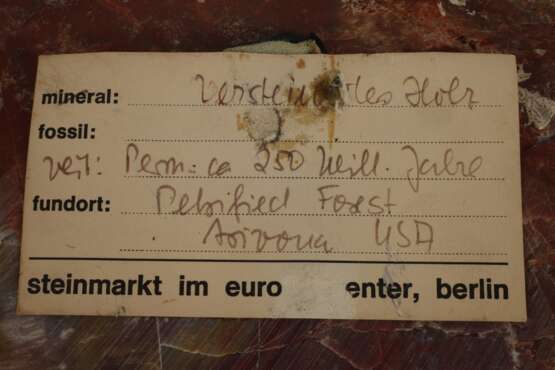 mineral: Versteinertes Holz
fossil:
Zeit: Perm: ca 250 Mill. Jahre
fundort: Petrified Forest
Arizona USA
steinmarkt im euro enter, berlin